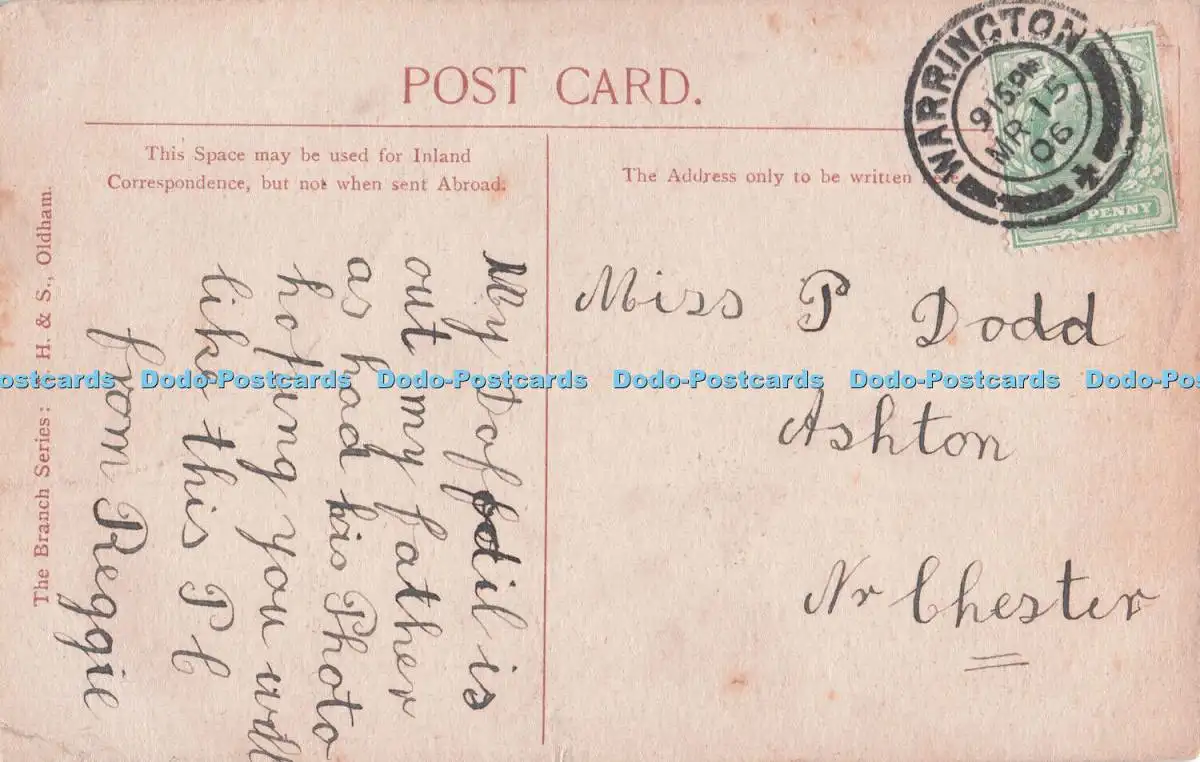 POST CARD.
This Space may be used for Inland
Correspondence, but not when sent Abroad.
The Address only to be written
WARRINGTON
915PM
MR 15
06
PENNY
My Doffdil is
out my father
as had his Photo
hoping you will
like this P C
from Reggie
Miss P Dodd
Ashton
Nr Chester
The Branch Series: H. & S., Oldham.
ostcards Dodo-Postcards Dodo-Postcards Dodo-Postcards Dodo-Postcards Dodo-Po